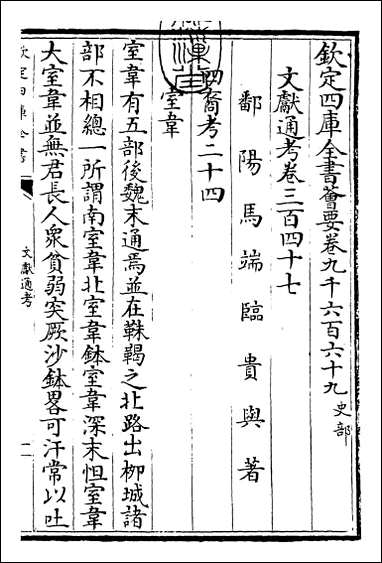 欽定四庫全書薈要卷九千六百六十九 史部
文獻通考卷三百四十七
鄱陽馬端臨貴與著
四裔考二十四
室韋
室韋有五部後魏末通焉並在靺鞨之北路出柳城諸
部不相總一所謂南室韋北室韋鉢室韋深末怛室韋
大室韋並無君長人衆貧弱突厥沙鉢畧可汗常以吐
欽定四庫全書
文獻通考
一